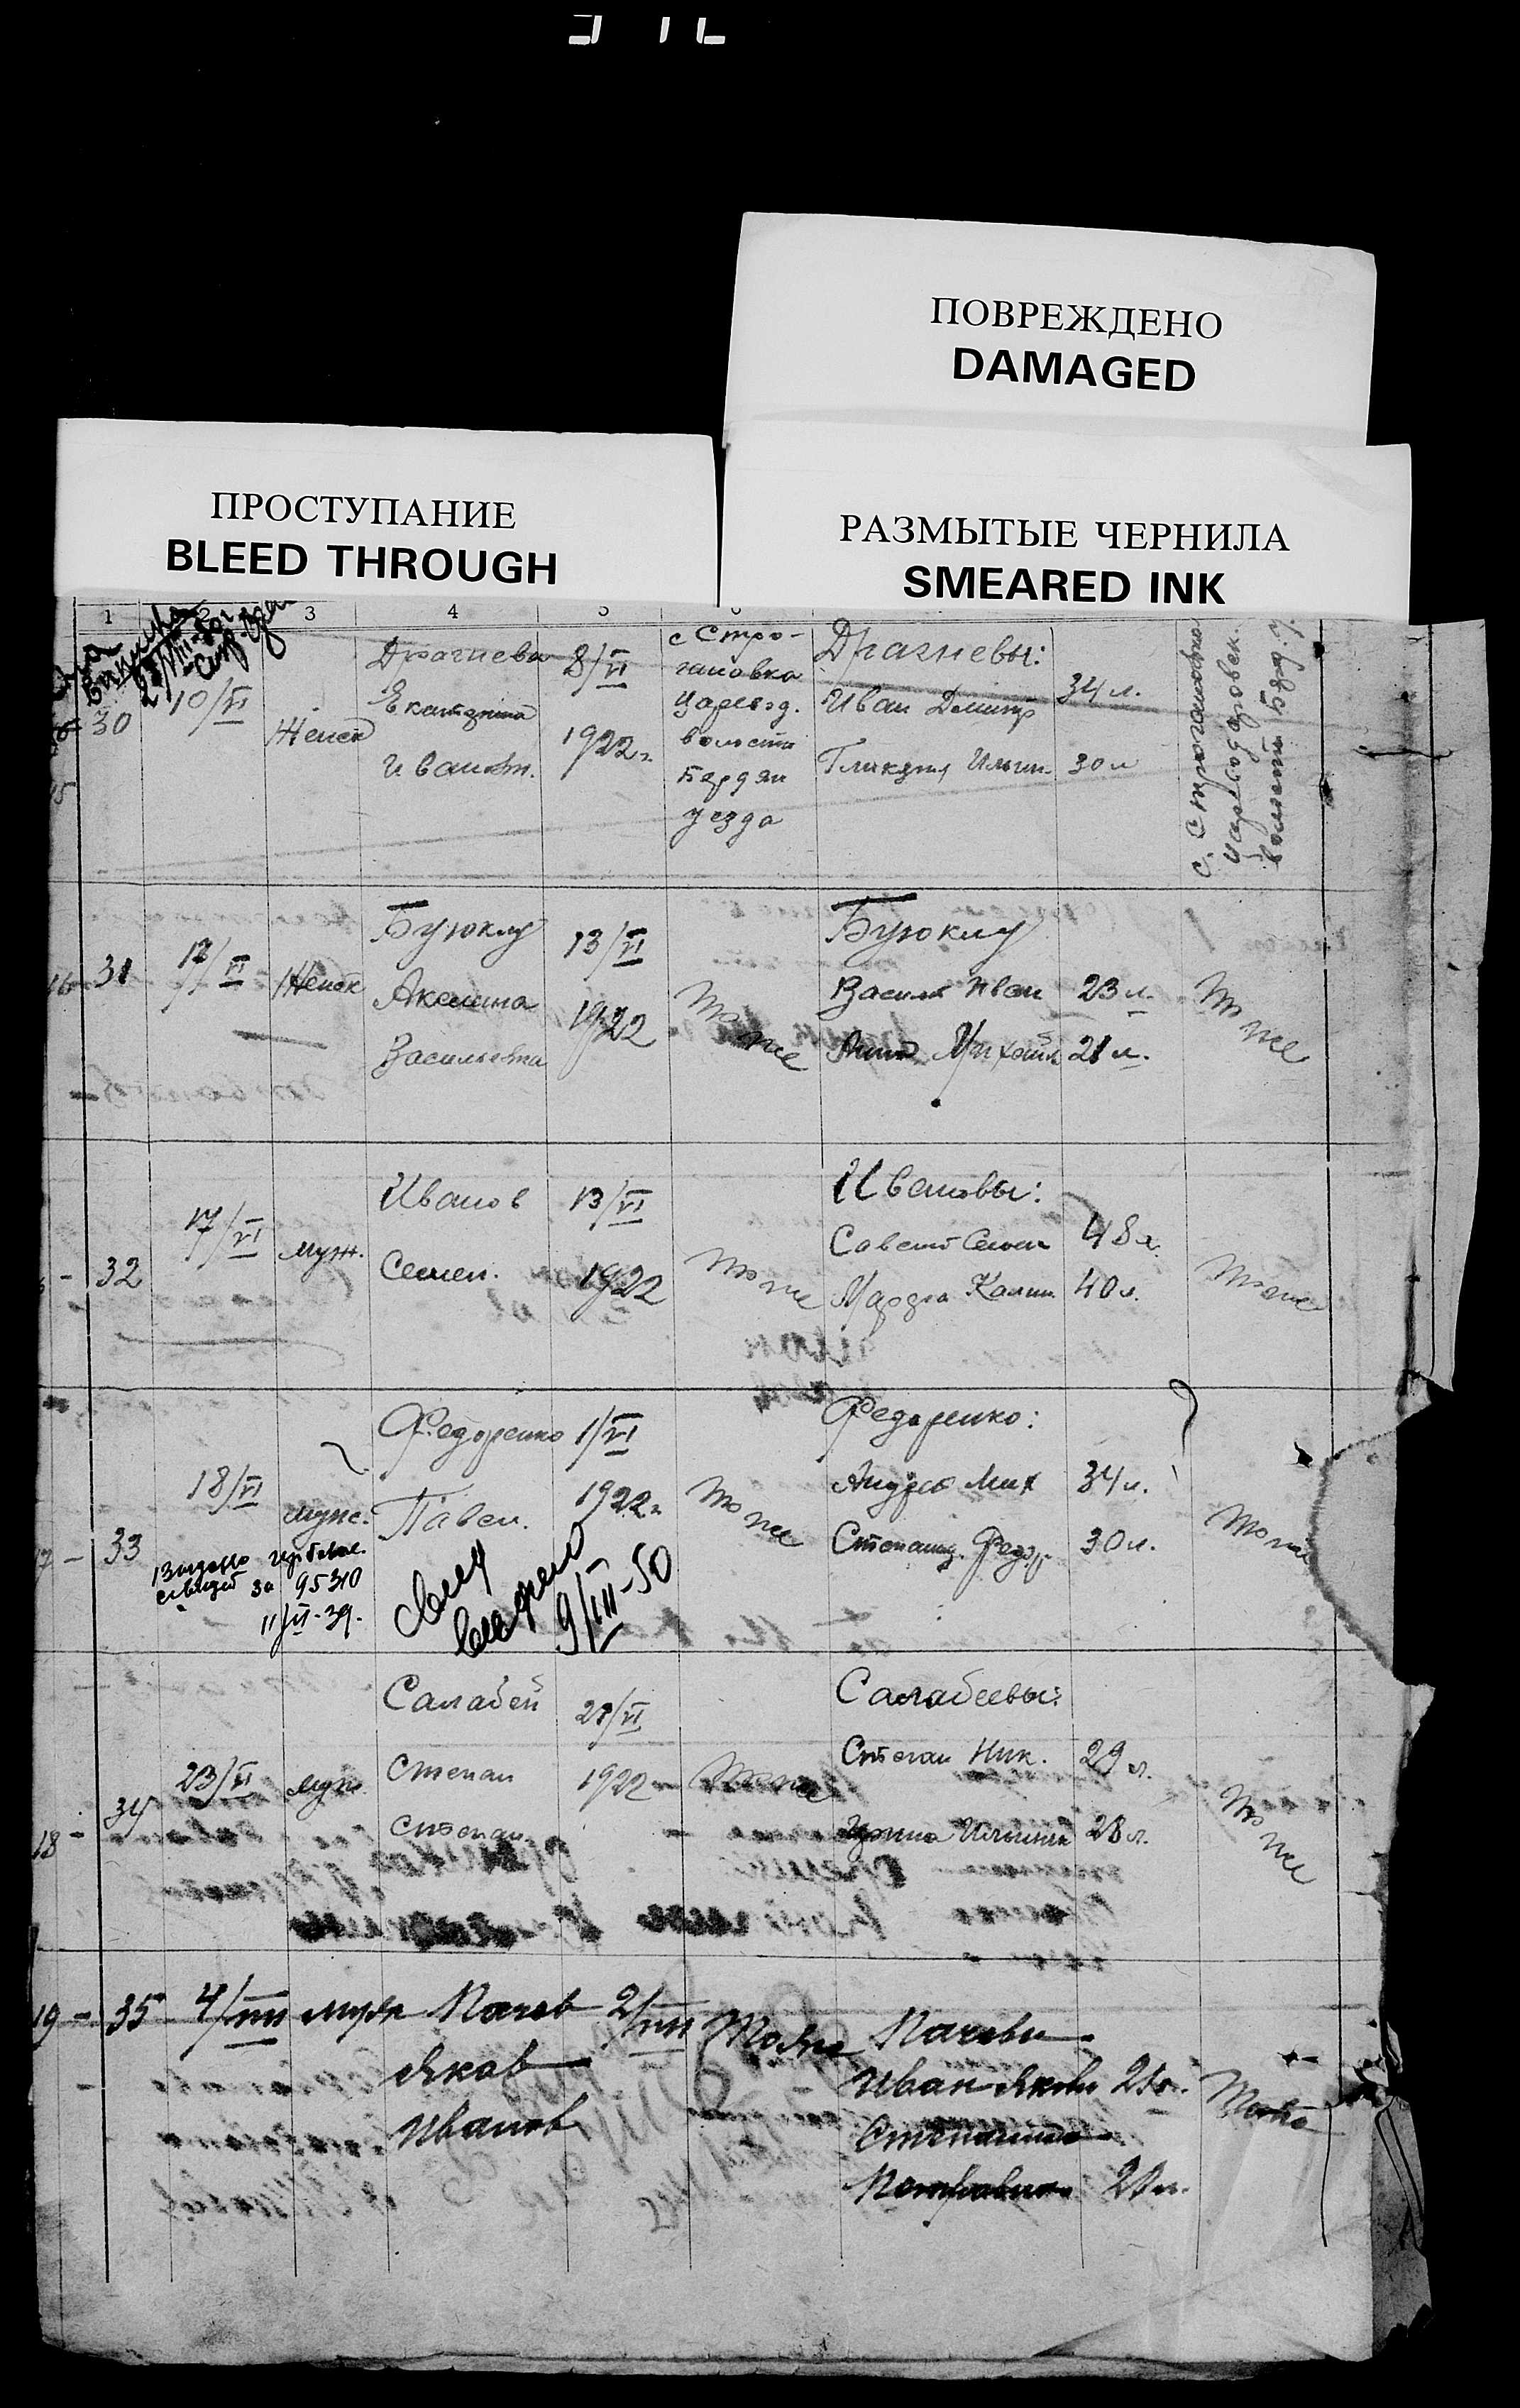 ПОВРЕЖДЕНО
DAMAGED
ПРОСТУПАНИЕ
BLEED THROUGH
РАЗМЫТЫЕ ЧЕРНИЛА
SMEARED INK
1 2 3 4 5
30 10/VI Женск
Драгнева
Екатерина
Иванов.
8/VI
1922г.
с Стро-
гановка
Царевод.
волости
Бердян
уезда
Драгневы:
Иван Димитр 34 л.
Гликерия Ильин. 30 л
с. Строгановка
Царевод
волости Берд. у.
16 31 17/VI Женск
Буюклу
Акелина
Васильевна
13/VI
1922
то же
Буюклу
Василий Иван 23 л.
Анна Михайл 21 л.
то же
32 17/VI муж.
Иванов
Семен.
13/VI
1922
то же
Ивановы:
Савелий Семен 48 л.
Марфа Калин 40 л.
то же
33 18/VI муж.
Федоренко
Павел.
1/VI
1922г.
то же
Федоренко:
Андрей Мих 34 л.
Степанид. Федор. 30 л.
то же
за 95310
9/III-50
18 - 34 23/VI муж.
Саладей
Степан
Степан.
1922
то же
Саладеевы:
Степан Ник. 29 л.
Ирина Ильинич 28 л.
то же
19 - 35 4/VIII муж
Пачев
Яков
Иванов
2/VIII
то же
Пачевы
Иван Яковл
Степанида
Петровна
то же